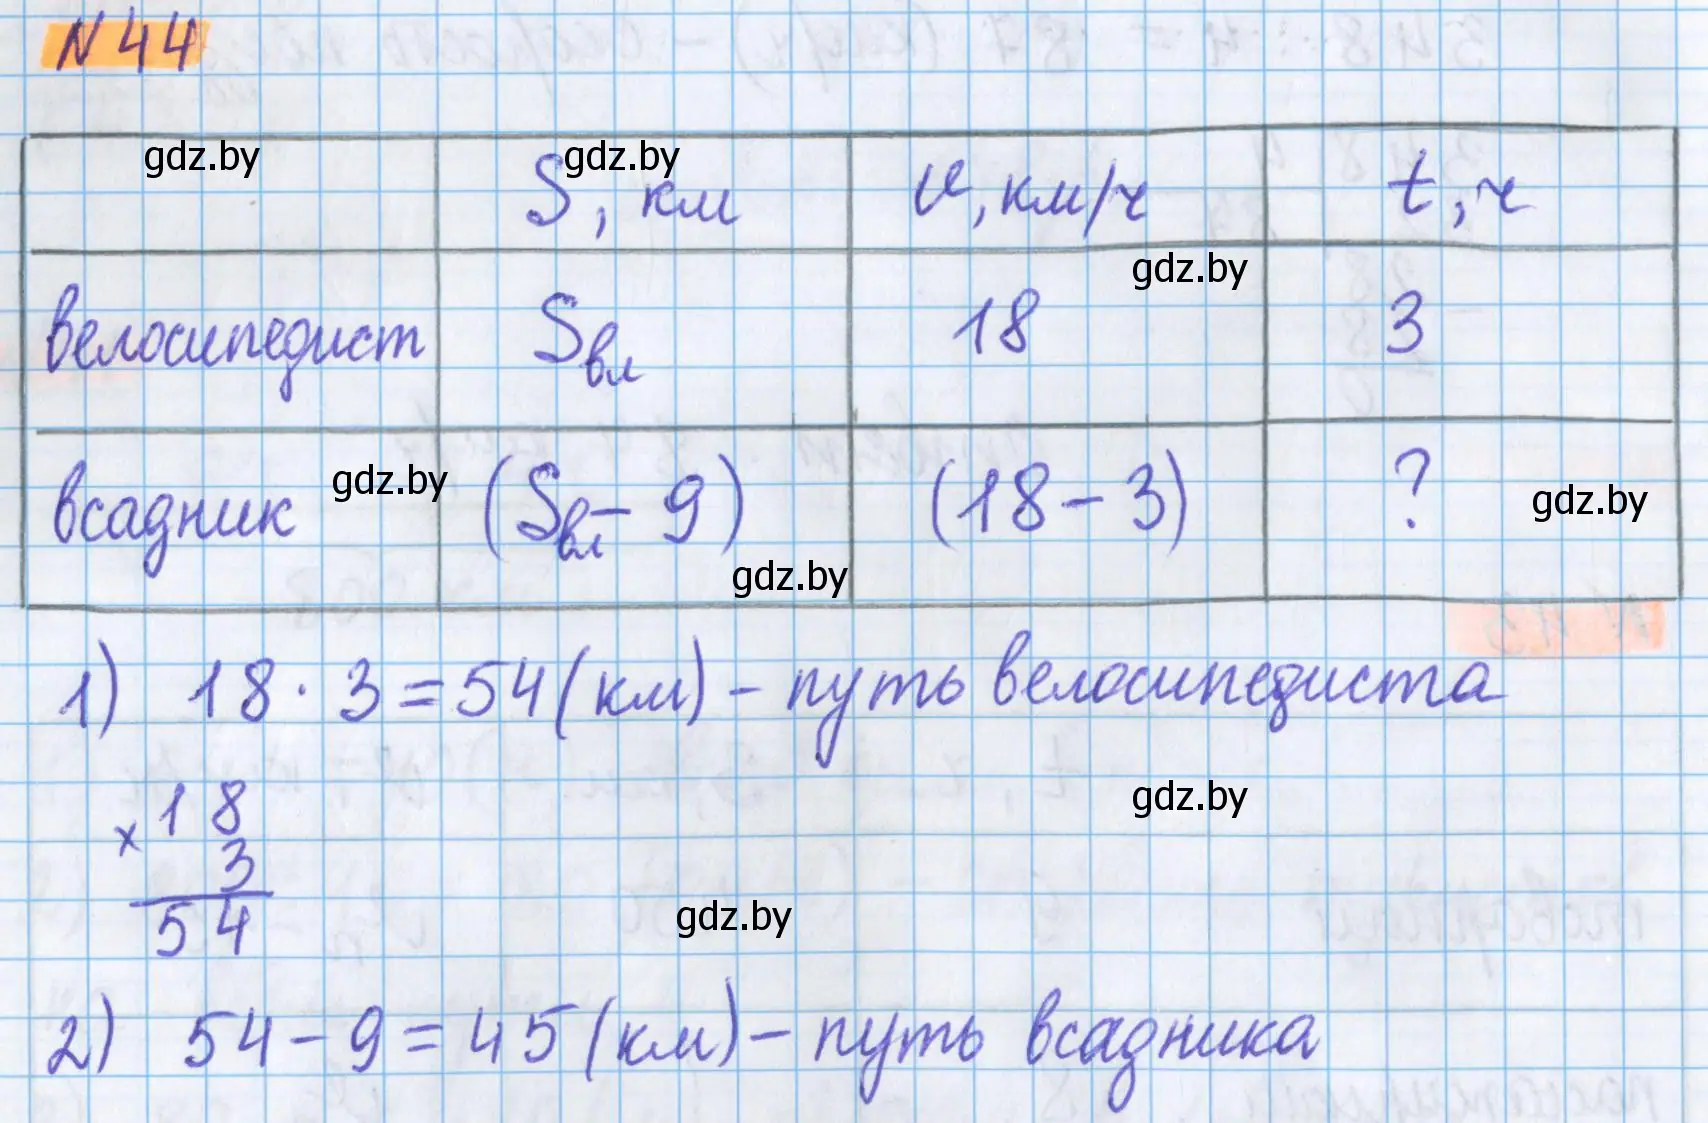 N 44
gdz.by gdz.by
S, км v, км/ч t, ч
gdz.by
велосипедист Sвл 18 3
всадник gdz.by (Sвл - 9) (18 - 3) ? gdz.by
gdz.by
1) 18 · 3 = 54 (км) - путь велосипедиста
gdz.by
18
× 3
54
gdz.by
2) 54 - 9 = 45 (км) - путь всадника